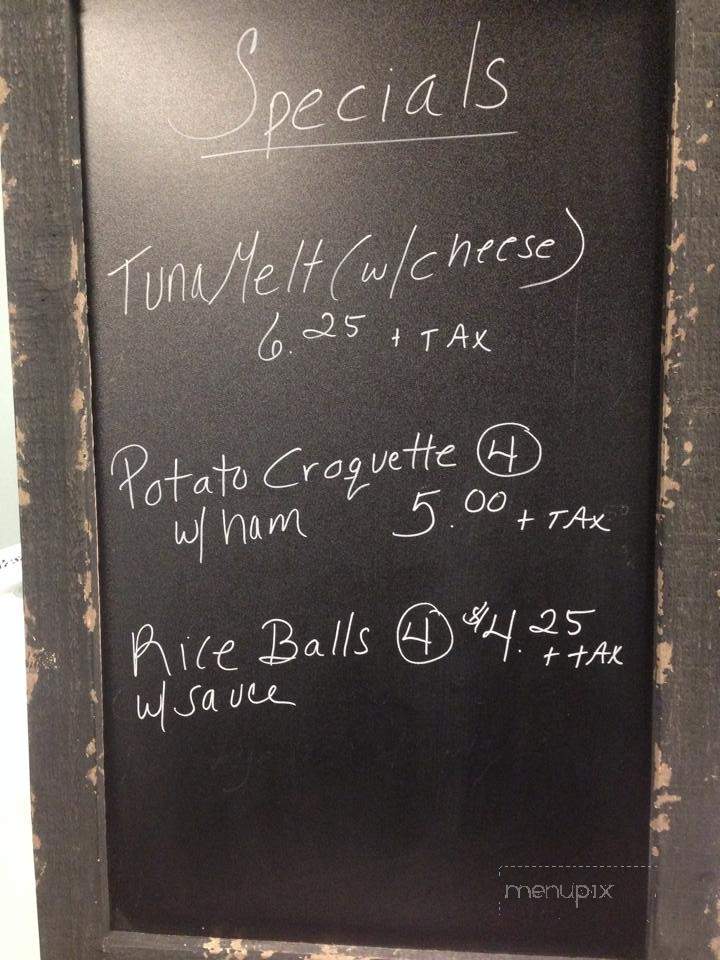 Specials
Tuna Melt (w/cheese)
6.25 + TAX
Potato Croquette 4
w/ham 5.00 + TAX
Rice Balls 4 $4.25
+ tAX
w/sauce
menupix